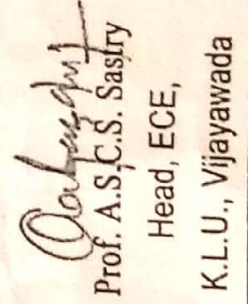 Prof. A.S.C.S. Sastry
Head, ECE,
K.L.U., Vijayawada